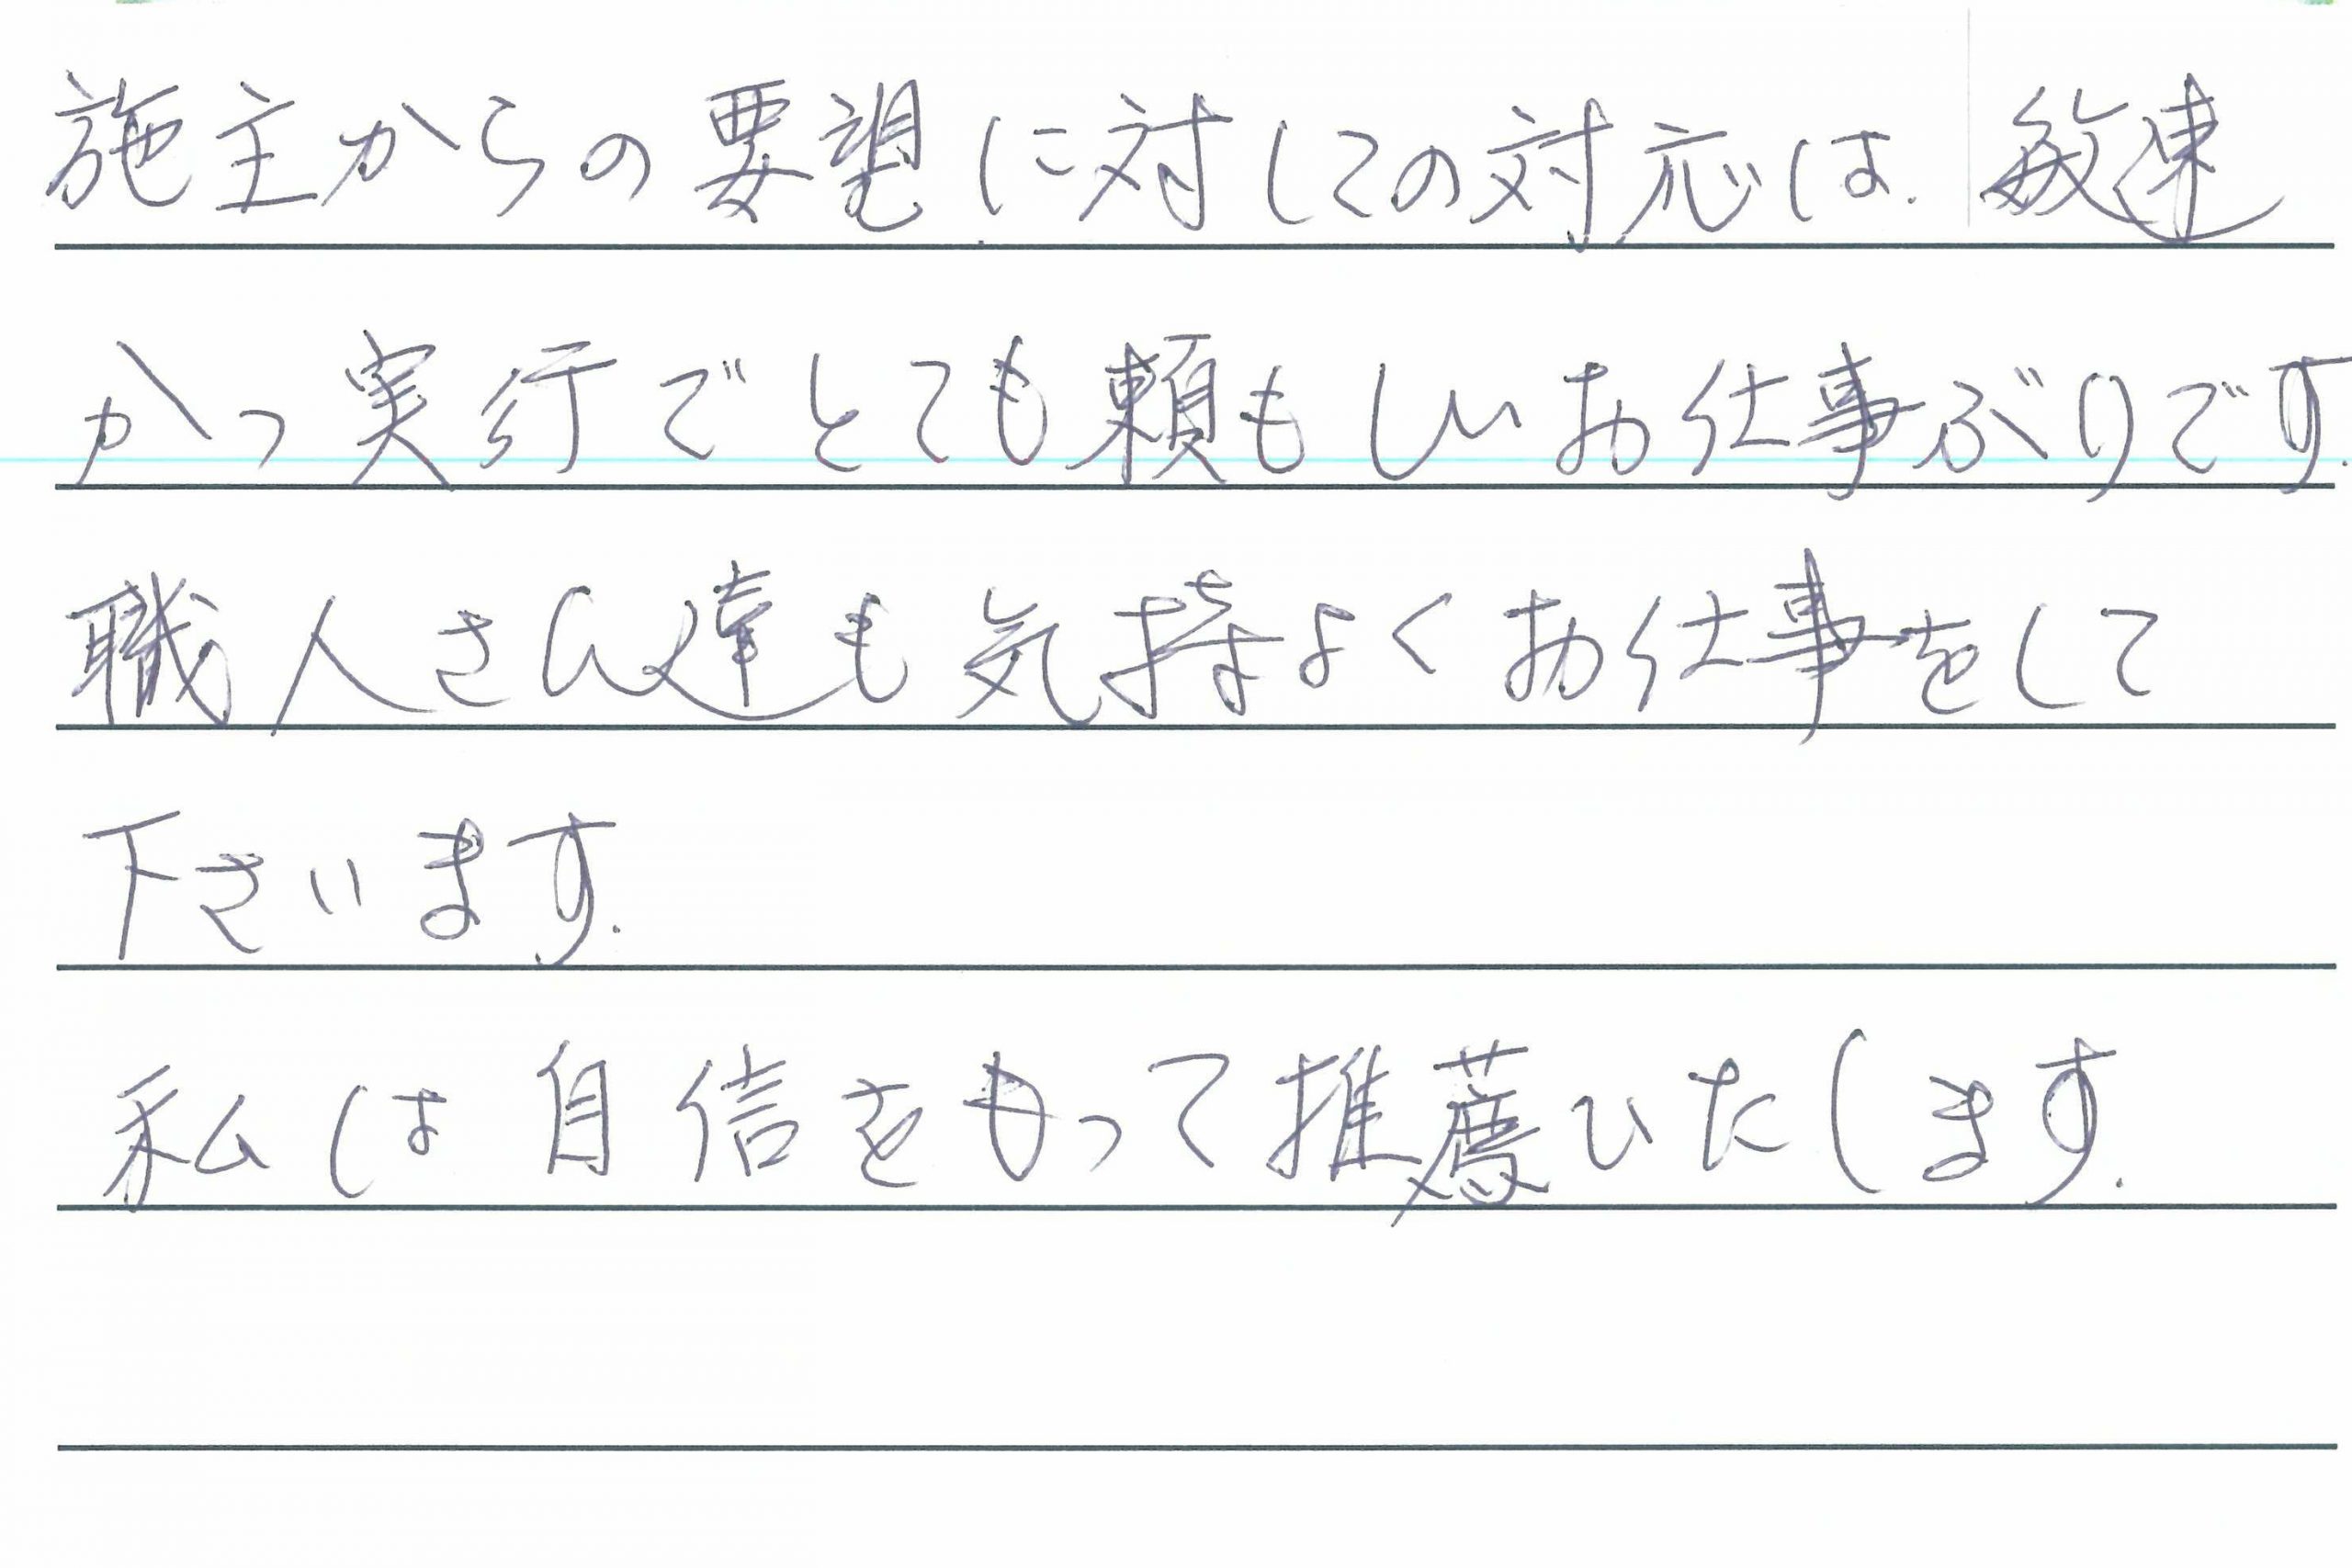 施主からの要望に対しての対応は、敏速
かつ実行でとても頼もしいお仕事ぶりです。
職人さん達も気持よくお仕事をして
下さいます。
私は自信をもって推薦いたします。